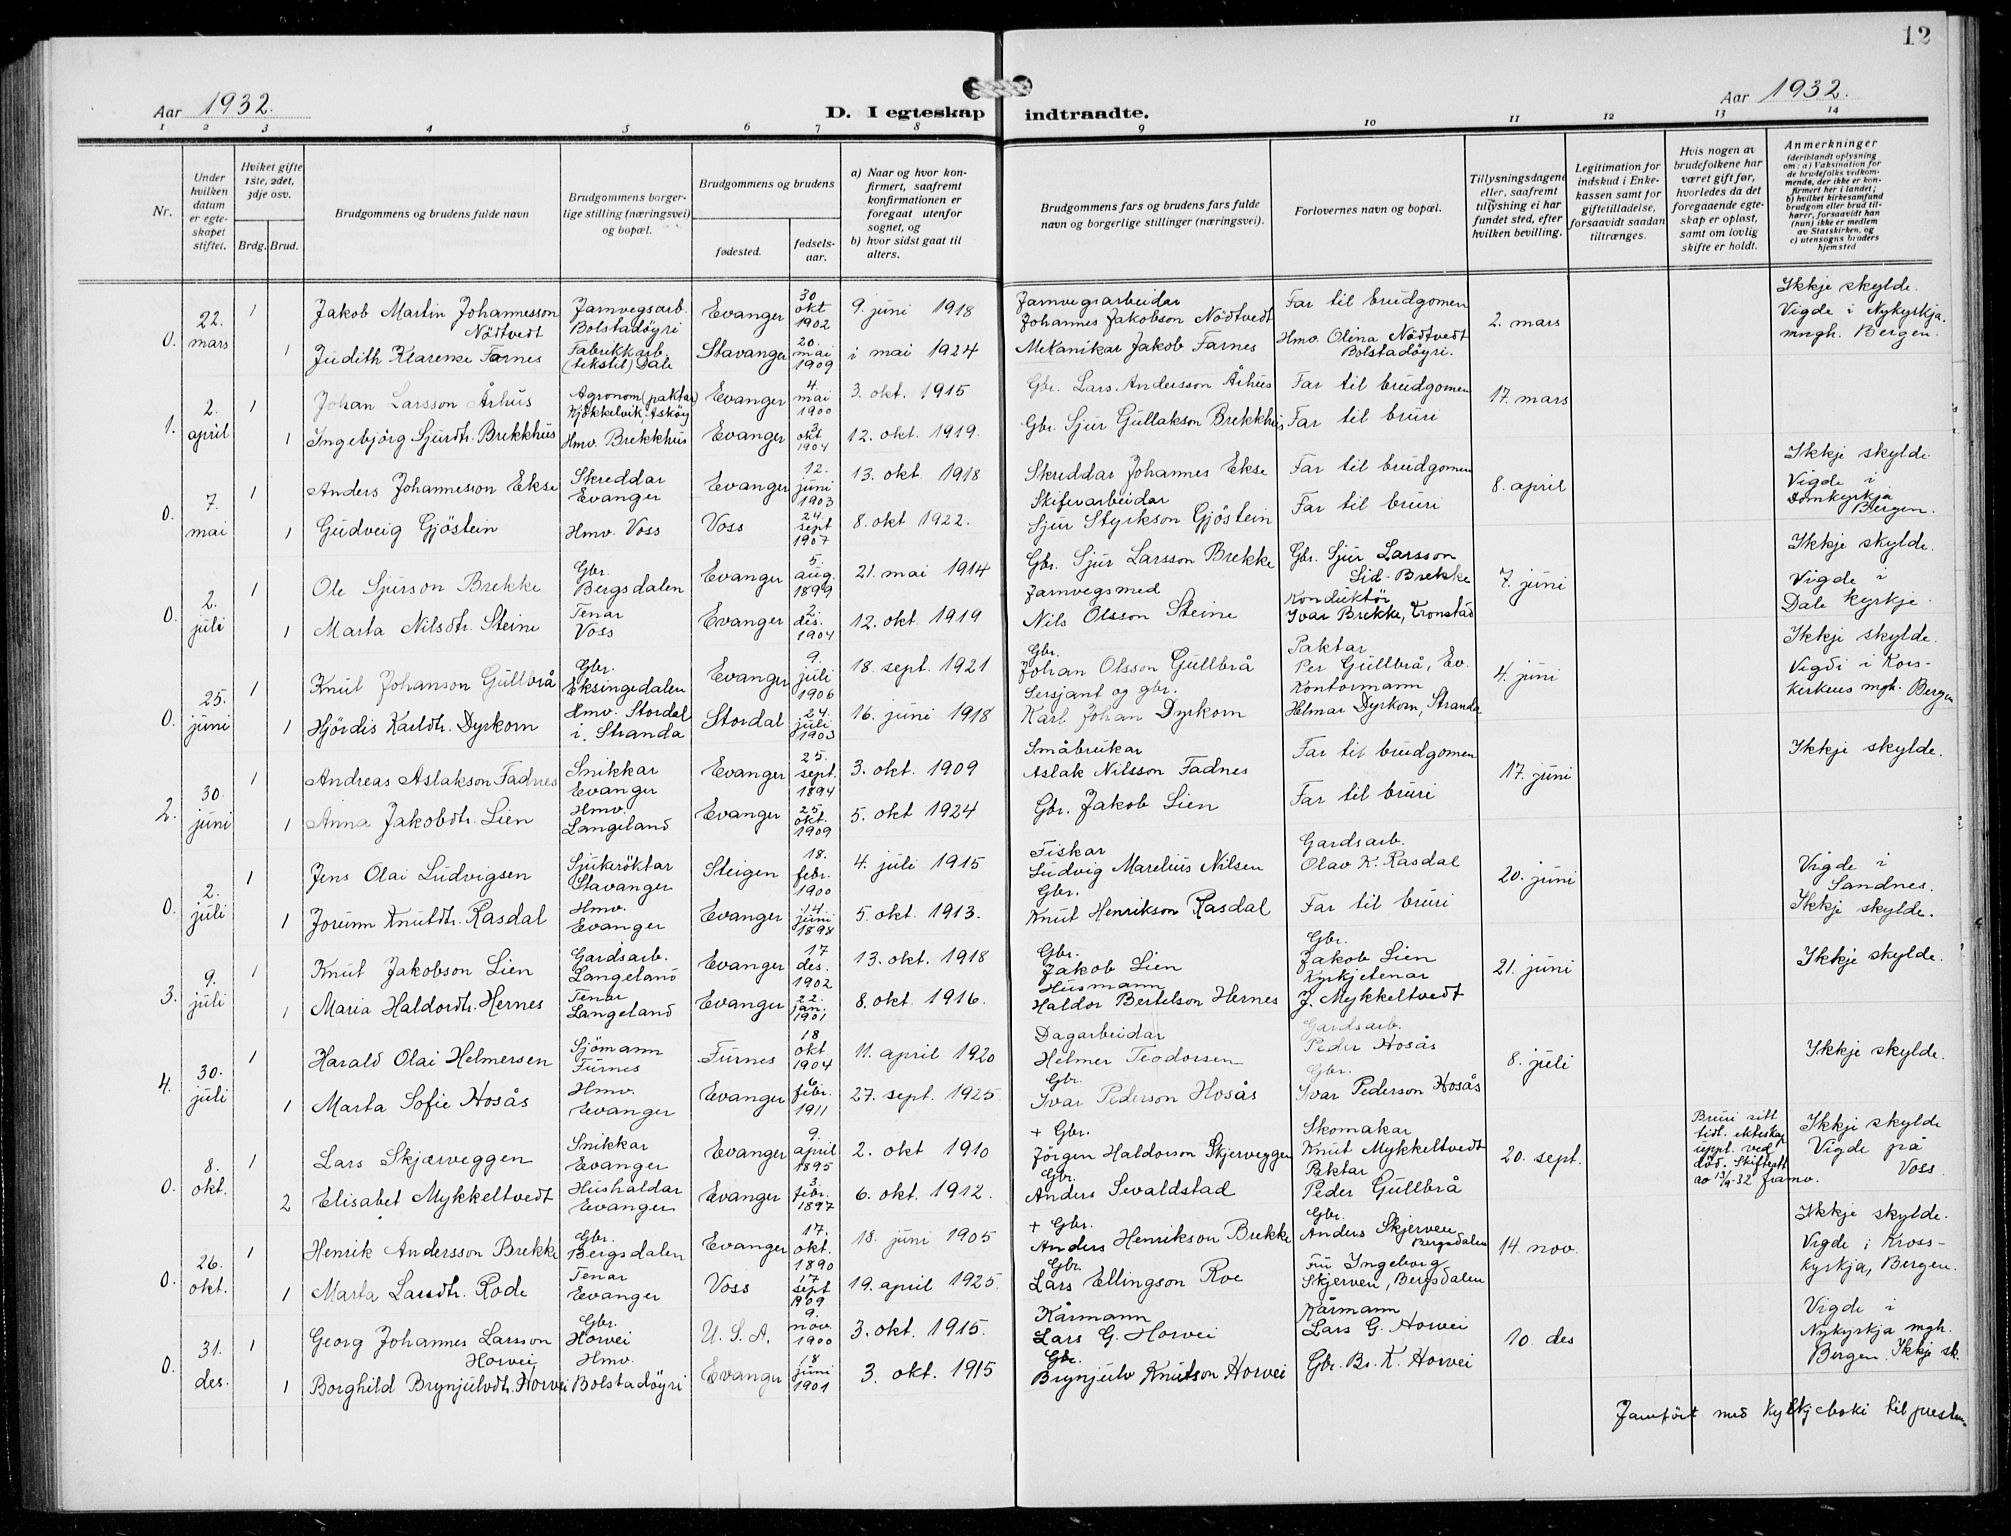 12
Aar 1932.
D. I egteskap indtraadte.
Aar 1932.
1 2 3 4 5 6 7 8 9 10 11 12 13 14
Nr.
Under hvilken datum er egteskapet stiftet.
Hvilket gifte 1ste, 2det, 3dje osv.
Brdg. Brud.
Brudgommens og brudens fulde navn
Brudgommens borgerlige stilling (næringsvei) og bopæl.
Brudgommens og brudens
fødested.
fødselsaar.
a) Naar og hvor konfirmert, saafremt konfirmationen er foregaat utenfor sognet, og
b) hvor sidst gaat til alters.
Brudgommens fars og brudens fars fulde navn og borgerlige stillinger (næringsvei).
Forlovernes navn og bopæl.
Tillysningsdagene eller, saafremt tillysning ei har fundet sted, efter hvilken bevilling.
Legitimation for indskud i Enkekassen samt for giftetilladelse, forsaavidt saadan tiltrænges.
Hvis nogen av brudefolkene har været gift før, hvorledes da det foregaaende egteskap er opløst, samt om lovlig skifte er holdt.
Anmerkninger
(deriblandt oplysning om: a) Vaksination for de brudefolks vedkommende, der ikke er konfirmert her i landet; b) hvilket kirkesamfund brudgom eller brud tilhører, forsaavidt han (hun) ikke er medlem av Statskirken, og c) utensogns bruders hjemsted
0. 22. mars 1 Jakob Martin Johannesson Nödtvedt Jarnvegsarb. Bolstadöyri Evanger 30 okt 1902 9. juni 1918 Jarnvegsarbeidar Johannes Jakobson Nödtvedt Far til brudgomen 2. mars Ikkje skylde. Vigde i Nykyrkja. mngh. Bergen.
1 Judith Klarense Farnes Fabrikkarb. (tekstil) Dale Stavanger 20. mai 1909 i mai 1924 Mekanikar Jakob Farnes Hmv. Olina Nödtvedt Bolstadöyri.
1. 2. april 1 Johan Larsson Århus Agronom (paktar) Kjökkelvik, Asköy Evanger 4. mai 1900 3. okt. 1915 Gbr. Lars Andersson Århus Far til brudgomen 17. mars
1 Ingebjörg Sjurdtr. Brekkhus Hmv. Brekkhus Evanger 3. okt 1904 12. okt. 1919. Gbr. Sjur Gullakson Brekkhus Far til bruri
0. 7. mai 1 Anders Johannesson Ekse Skreddar Evanger Evanger 12. juni 1903 13. okt 1918 Skreddar Johannes Ekse Far til brudgomen 8. april Ikkje skylde. Vigde i Domkyrkja Bergen.
1 Gudveig Gjöstein Hmv. Voss Voss 24. sept 1907 8. okt 1922. Skiferarbeidar Sjur Styrkson Gjöstein Far til bruri
0. 2. juli 1 Ole Sjurson Brekke Gbr. Bergsdalen Evanger 5. aug. 1899 21. mai 1914 Gbr. Sjur Larsson Brekke Gbr. Sjur Larsson Lid-Brekke 7. juni Ikkje skylde. Vigde i Dale kyrkje.
1 Marta Nilsdtr. Steine Tenar Voss Evanger 2. des. 1904 12. okt 1919 Jarnvegsmed Nils Olsson Steine Konduktör Ivar Brekke, Kronstad
0. 25. juni 1 Knut Johanson Gullbrå Gbr. Eksingedalen Evanger 9. juli 1906 18. sept. 1921 Gbr. Johan Olsson Gullbrå Paktar Per Gullbrå, Ev. 4. juni Ikkje skylde. Vigdi i Korskerkeus mgh. Bergen
1 Hjördis Karldtr. Dyrkorn Hmv. Stordal i. Stranda Stordal 24. juli 1903 16. juni 1918 Sersjant og gbr. Karl Johan Dyrkorn Kontormann Helmar Dyrkorn, Stranda
2. 30. juni 1 Andreas Aslakson Fadnes Snikkar Evanger Evanger 25. sept. 1894 3. okt. 1909 Småbrukar Aslak Nilsson Fadnes Far til brudgomen 17. juni Ikkje skylde.
1 Anna Jakobdtr. Lien Hmv. Langeland Evanger 25. okt. 1909 5. okt 1924 Gbr. Jakob Lien Far til bruri
0. 2. juli 1 Jens Olai Ludvigsen Sjukeröktar Stavanger Steigen 18. febr. 1900 4. juli 1915 Fiskar Ludvig Marelius Nilsen Gardsarb. Olav K. Rasdal 20. juni Vigde i Sandnes. Ikkje skylde.
1 Jorunn Knutdtr. Rasdal Hmv. Evanger Evanger 14. juni 1898 5. okt. 1913. Gbr. Knut Henrikson Rasdal Far til bruri
3. 9. juli 1 Knut Jakobson Lien Gardsarb. Langeland Evanger 17 des. 1902 13. okt. 1918 Gbr. Jakob Lien Gbr. Jakob Lien 21. juni Ikkje skylde.
1 Maria Haldordtr. Hernes Tenar Langeland Evanger 22. jan. 1901 8. okt. 1916. Husmann Haldor Bertelson Hernes Kyrkjetenar J. Mykkeltvedt
4. 30. juli 1 Harald Olai Helmersen Sjömann Furnes Furnes 18 okt 1904 11. april 1920 Dagarbeidar Helmer Teodorsen Gardsarb. Peder Hosås 8. juli Ikkje skylde.
1 Marta Sofie Hosås Hmv. Evanger Evanger 6. febr. 1911 27. sept. 1925 Gbr. Ivar Pederson Hosås Gbr. Ivar Pederson Hosås
0. 8. okt. 1 Lars Skjærveggen Snikkar Evanger Evanger 9. april 1895 2. okt 1910 + Gbr. Jörgen Haldorson Skjerveggen Skomakar Knut Mykkeltvedt 20. sept. Bruri sitt tidl. ekteskap uppl. ved död. Skifteatt. av 13/9-32 framv. Ikkje skylde Vigde på Voss.
2 Elisabet Mykkeltvedt Hushaldar Evanger Evanger 3. febr. 1897 6. okt. 1912. Gbr. Anders Sevaldstad Paktar Peder Gullbrå
0. 26. okt. 1 Henrik Andersson Brekke Gbr. Bergsdalen Evanger 17. okt. 1890 18. juni 1905 + Gbr. Anders Henrikson Brekke Gbr. Anders Skjerven Bergsdalen 14. nov. Ikkje skylde. Vigde i Krosskyrkja, Bergen.
1 Marta Larsdtr. Rode Tenar Evanger Voss 17 sept 1909 19. april 1925. Gbr. Lars Ellingson Roe Fru Ingeborg Skjerven, Bergsdalen
0. 31. des. 1 Georg Johannes Larsson Horvei Gbr. Horvei U. S. A. 9. nov. 1900 3. okt. 1915. Kårmann Lars G. Horvei Kårmann Lars G. Horvei 10. des Vigde i Nykyrkja mgh. Bergen. Ikkje sk.
1 Borghild Brynjulvdtr. Horvei Hmv. Bolstadöyri Evanger 18 juni 1901 3. okt. 1915 Gbr. Brynjulv Knutson Horvei Gbr. Br. K. Horvei
Jamfört med kyrkjeboki til presten.